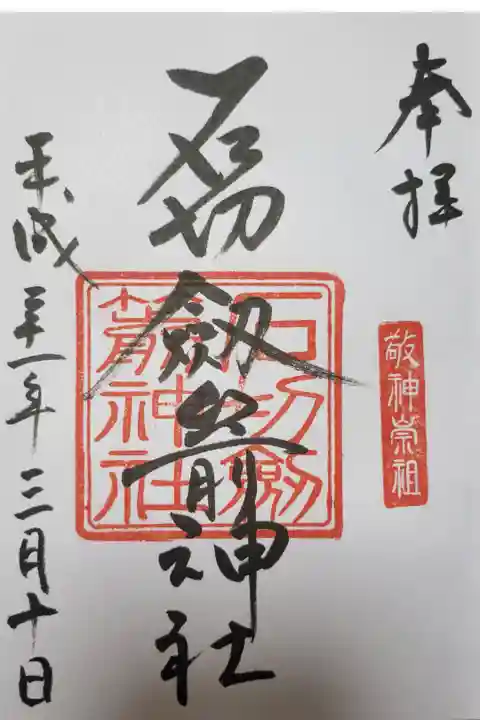 奉拝
敬神崇祖
石切劔箭神社
石切劔
箭神社
平成三十一年三月十日